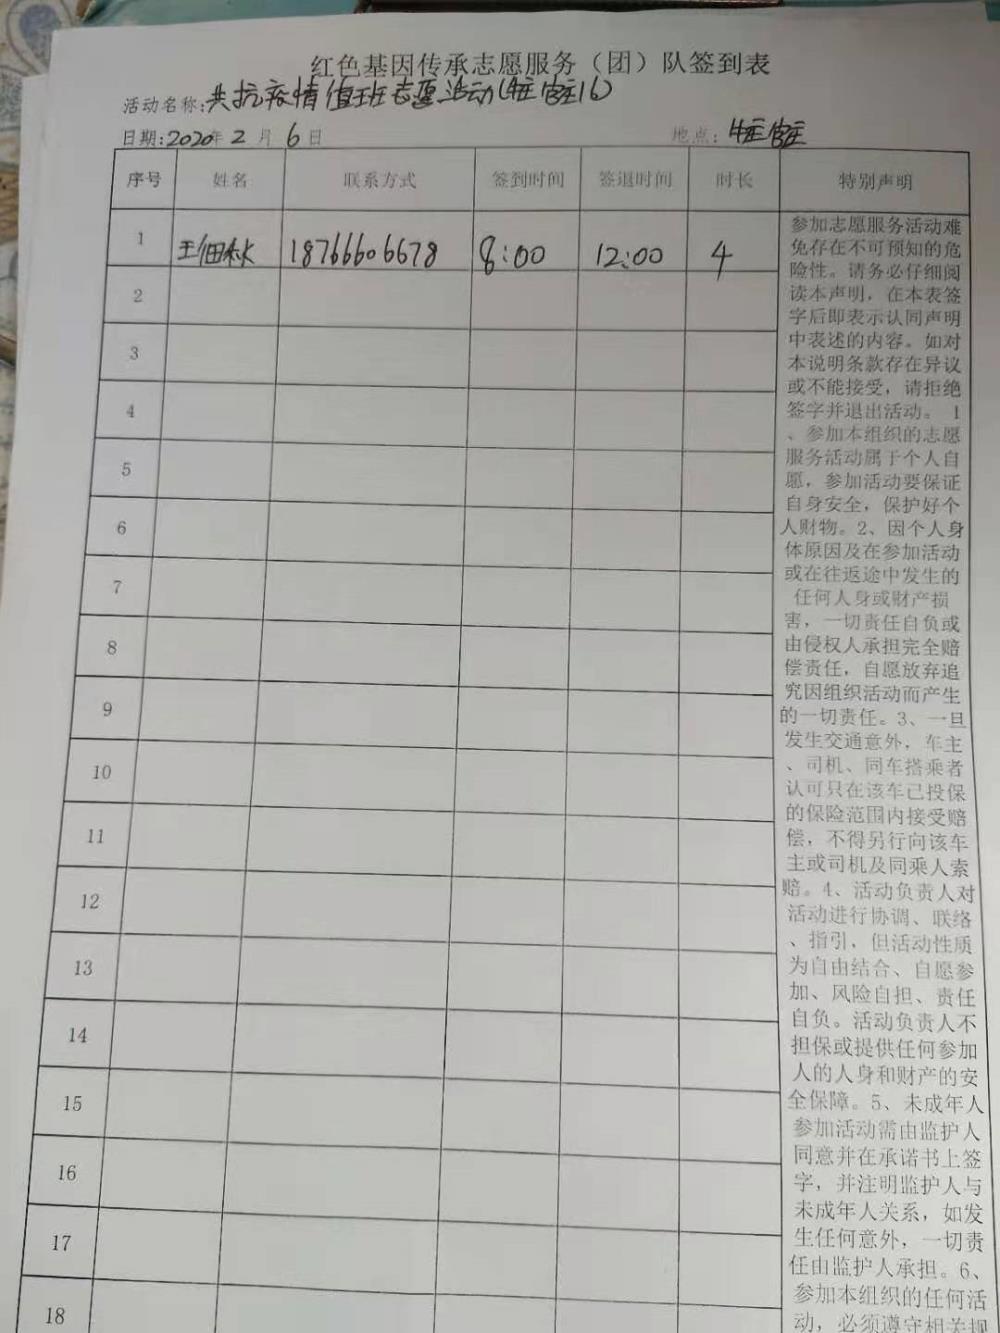 红色基因传承志愿服务（团）队签到表
活动名称:共抗疫情值班志愿活动(牛庄官庄16)
日期:2020年2月6日 地点:
序号 姓名 联系方式 签到时间 签退时间 时长 特别声明
1 王佃秋 18766606678 8:00 12:00 4
2
3
4
5
6
7
8
9
10
11
12
13
14
15
16
17
18
参加志愿服务活动难
免存在不可预知的危
险性。请务必仔细阅
读本声明，在本表签
字后即表示认同声明
中表述的内容。如对
本说明条款存在异议
或不能接受，请拒绝
签字并退出活动。 1
、参加本组织的志愿
服务活动属于个人自
愿，参加活动要保证
自身安全，保护好个
人财物。2、因个人身
体原因及在参加活动
或在往返途中发生的
任何人身或财产损
害，一切责任自负或
由侵权人承担完全赔
偿责任，自愿放弃追
究因组织活动而产生
的一切责任。3、一旦
发生交通意外，车主
、司机、同车搭乘者
认可只在该车已投保
的保险范围内接受赔
偿，不得另行向该车
主或司机及同乘人索
赔。4、活动负责人对
活动进行协调、联络
、指引，但活动性质
为自由结合、自愿参
加、风险自担、责任
自负。活动负责人不
担保或提供任何参加
人的人身和财产的安
全保障。5、未成年人
参加活动需由监护人
同意并在承诺书上签
字，并注明监护人与
未成年人关系，如发
生任何意外，一切责
任由监护人承担。6、
参加本组织的任何活
动，必须遵守相关规